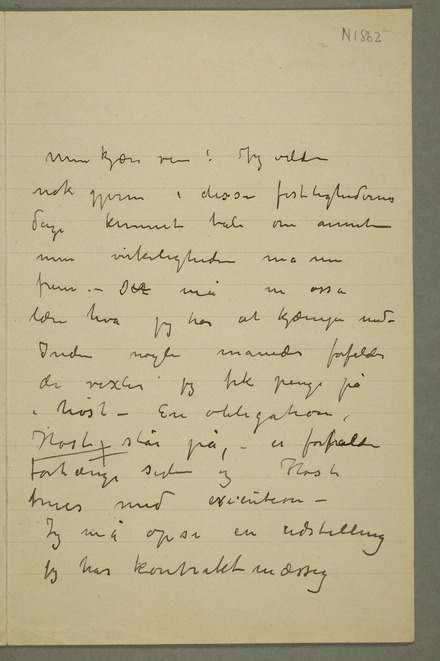 N1862
Min kjære ven! Jeg vilde
nok gjerne i disse festlighedernes
dage kunnet tale om annet
men virkeligheden må nu
frem. – Det må nu også
lære hva jeg har at kjæmpe med –
Inden nogle måneder forfalder
de vexler jeg fik penge på
i høst – En obligation,
Hosty står på, – er forfalden
forlænge siden og Host
trues med execution –
Jeg må opsi en udstilling
jeg har kontraktmæssig